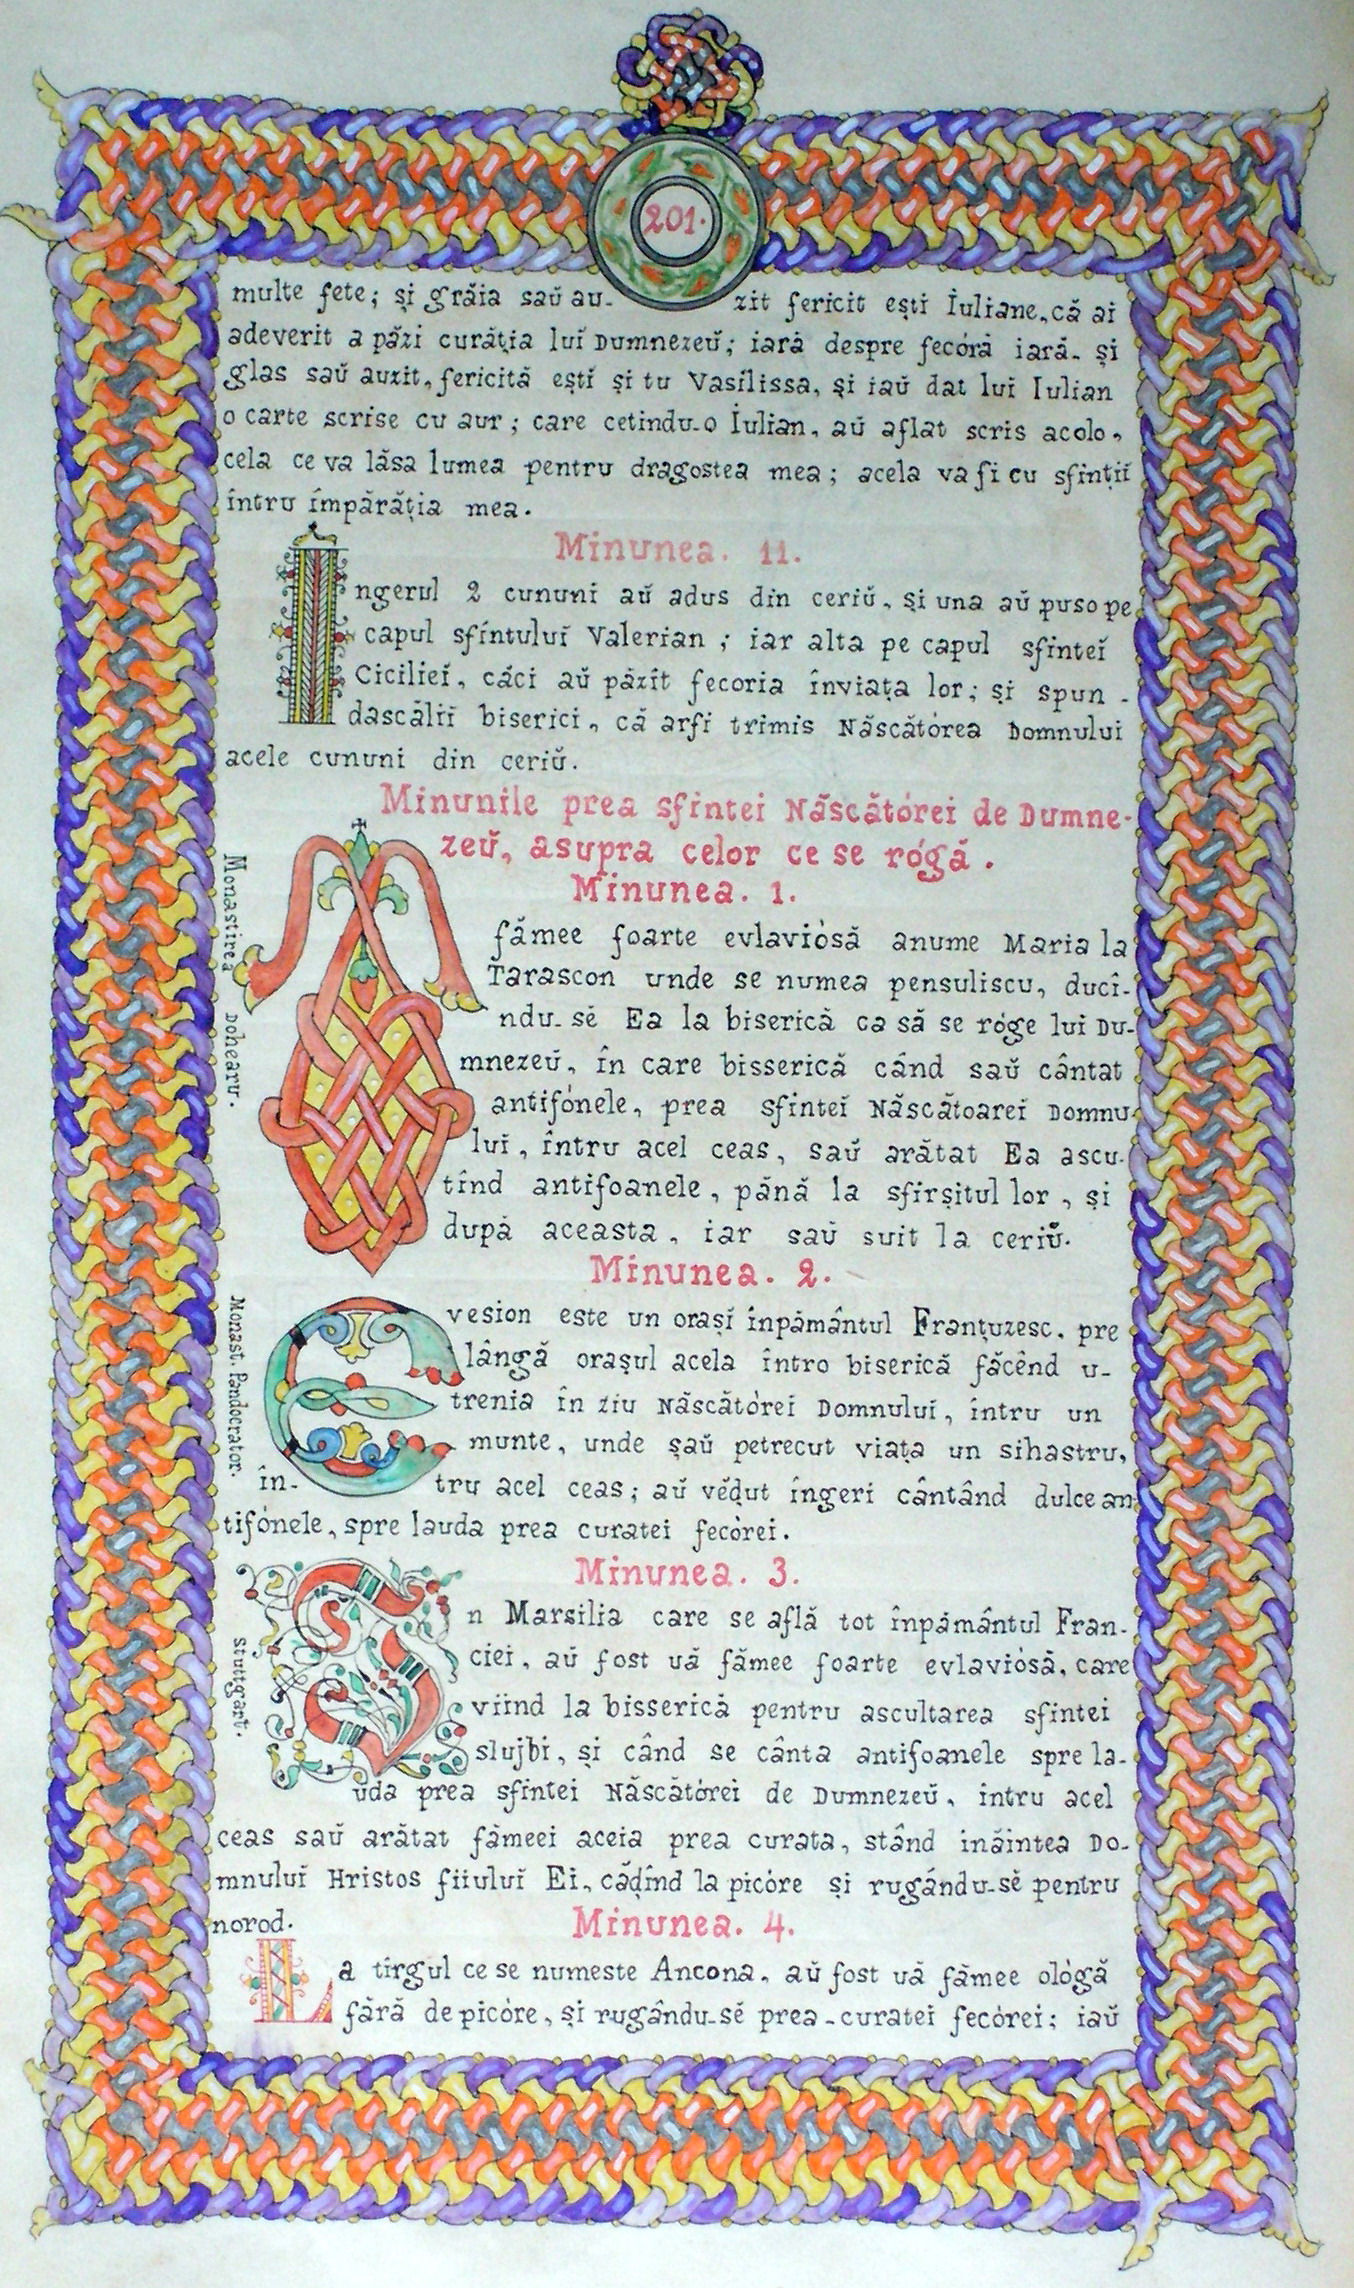 201.
multe fete; și grăia saŭ au- zit fericit ești Iuliane, că ai
adeverit a păzi curăția luĭ Dumnezeŭ; iară despre fecóră iară- și
glas saŭ auzit, fericită eștĭ și tu Vasilissa, și iaŭ dat lui Iulian
o carte scrise cu aur; care cetindu-o Iulian, aŭ aflat scris acolo,
cela ce va lăsa lumea pentru dragostea mea; acela va fi cu sfințiĭ
întru împărăția mea.
Minunea. 11.
Ingerul 2 cununi aŭ adus din ceriŭ, și una aŭ puso pe
capul sfîntuluĭ Valerian; iar alta pe capul sfinteĭ
Cicilieĭ, căci aŭ păzit fecoria înviața lor; și spun -
dascălii biserici, că arfi trimis Născătórea Domnului
acele cununi din ceriŭ.
Minunile prea sfintei Născătórei de Dumne-
zeŭ, asupra celor ce se rógă.
Minunea. 1.
Monastirea Dohearu.
fămee foarte evlaviósă anume Maria la
Tarascon unde se numea pensuliscu, ducî-
ndu-sĕ Ea la biserică ca să se róge lui Du-
mnezeŭ, în care bisserică când saŭ cântat
antifónele, prea sfinteĭ Născătoareĭ Domnu-
luĭ, întru acel ceas, saŭ arătat Ea ascu-
tînd antifoanele, până la sfirșitul lor, și
după aceasta, iar saŭ suit la ceriŭ.
Minunea. 2.
Monast. Pandocrator.
Evesion este un orașĭ înpământul Franțuzesc, pre
lângă orașul acela întro biserică făcênd u-
trenia în ziu Născătóreĭ Domnului, întru un
munte, unde șaŭ petrecut viața un sihastru,
în- tru acel ceas; aŭ vĕḑut îngeri cântând dulce an-
tifónele, spre lauda prea curatei fecórei.
Minunea. 3.
Stuttgart.
În Marsilia care se află tot înpământul Fran-
ciei, aŭ fost uă fămee foarte evlaviósă, care
viind la bisserică pentru ascultarea sfintei
slujbi, și când se cânta antifoanele spre la-
uda prea sfintei Născătóreĭ de Dumnezeŭ, intru acel
ceas saŭ arătat fămeeĭ aceia prea curata, stând inăintea Do-
mnuluĭ Hristos fiiuluĭ Ei, cădînd la picóre și rugându-sĕ pentru
norod.
Minunea. 4.
La tîrgul ce se numeste Ancona, aŭ fost uă fămee ológă
fără de picóre, și rugându-sĕ prea-curatei fecórei; iaŭ